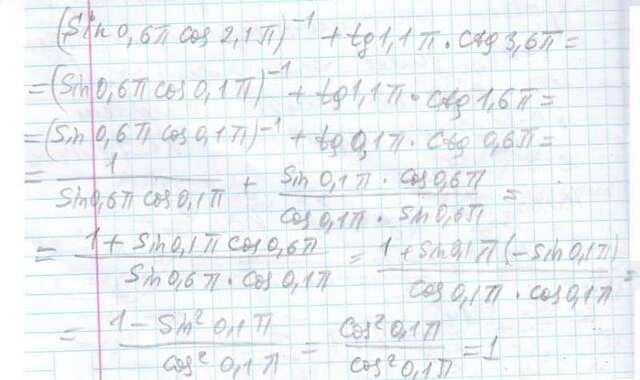 (sin 0,6π cos 2,1π)⁻¹ + tg 1,1π · ctg 3,6π =
= (sin 0,6π cos 0,1π)⁻¹ + tg 1,1π · ctg 1,6π =
= (sin 0,6π cos 0,1π)⁻¹ + tg 0,1π · ctg 0,6π =
= 1 / (sin 0,6π cos 0,1π) + (sin 0,1π · cos 0,6π) / (cos 0,1π · sin 0,6π) =
= (1 + sin 0,1π cos 0,6π) / (sin 0,6π · cos 0,1π) = (1 + sin 0,1π (−sin 0,1π)) / (cos 0,1π · cos 0,1π) =
= (1 − sin² 0,1π) / (cos² 0,1π) = (cos² 0,1π) / (cos² 0,1π) = 1